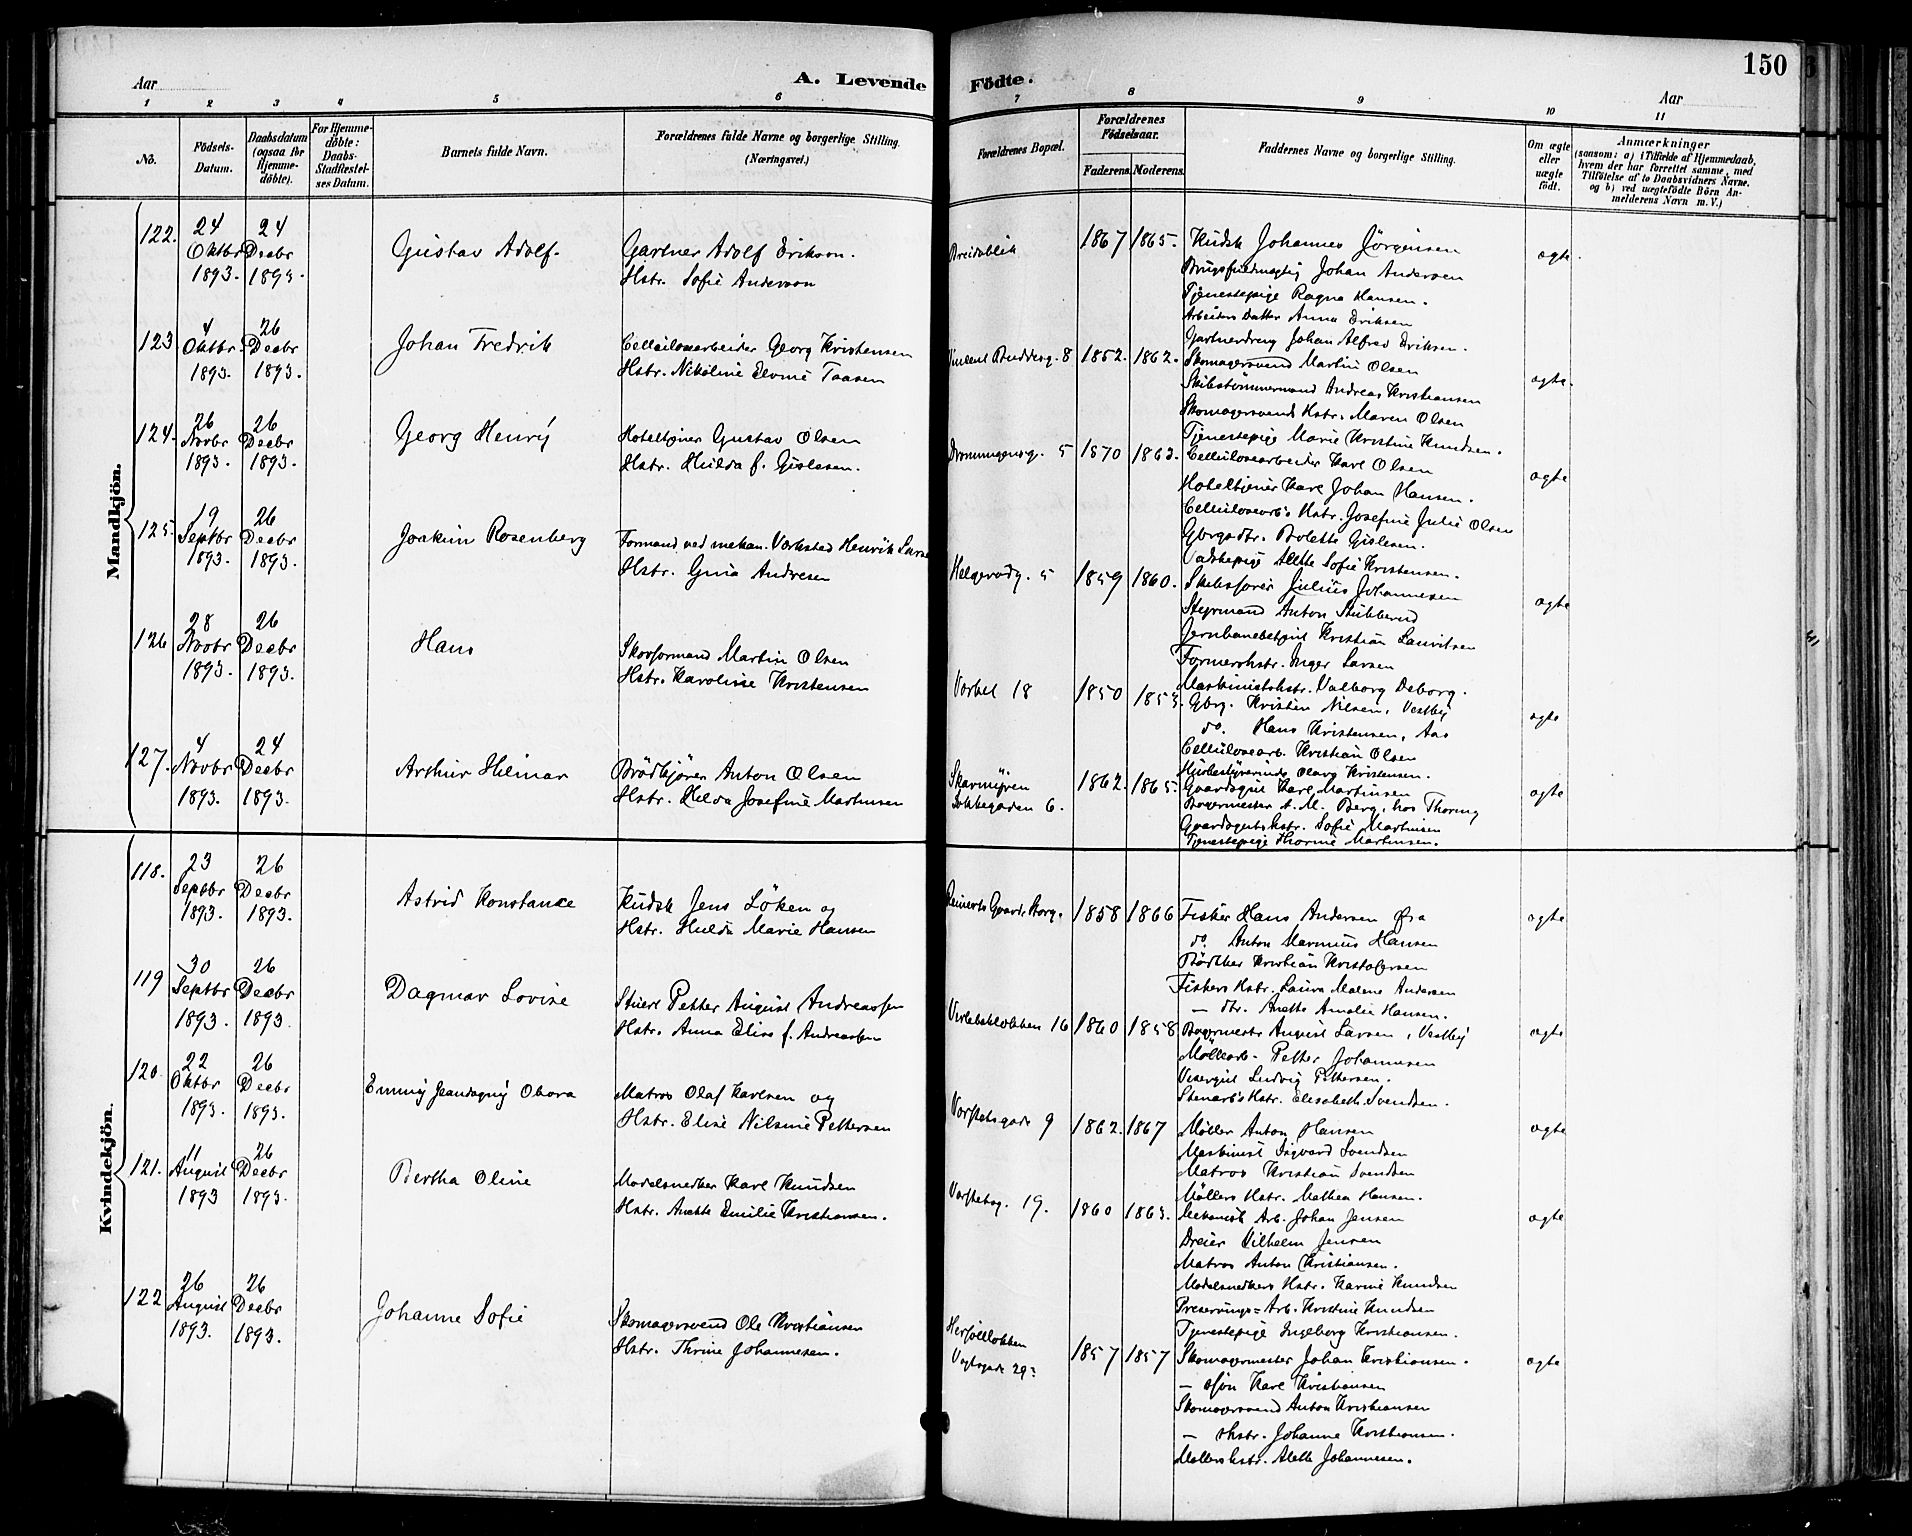 150
Aar
A. Levende
Födte.
Aar
1 2 3 4 5 6 7 8 9 10 11
No.
Födsels-Datum.
Daabsdatum (ogsaa for Hjemme-döbte).
For Hjemme-döbte: Daabs-Stadfæstel-ses Datum.
Barnets fulde Navn.
Forældrenes fulde Navne og borgerlige Stilling. (Næringsvei.)
Forældrenes Bopæl.
Forældrenes Födselsaar.
Faderens. Moderens.
Faddernes Navne og borgerlige Stilling.
Om ægte eller uægte födt.
Anmærkninger
(saasom: a) i Tilfælde af Hjemmedaab,
hvem der har forrettet samme, med
Tilföielse af to Daabsvidners Navne,
og b) ved uægtefödte Börn An-
melderens Navn m. V.)
Mandkjön.
122. 24 Oktbr 1893. 24 Decbr 1893.
Gustav Adolf.
Gartner Adolf Erikson.
Hstr. Sofie Anderson
Breidablik 1867 1865.
Kudsk Johannes Jörgensen
Brugsfuldmægtig Johan Andersen
Tjenestepige Ragna Hansen.
Arbeiders Datter Anna Eriksen
Gartnerdreng Johan Alfred Eriksen.
ægte.
123 4 Oktbr. 1893. 26 Decbr 1893.
Johan Fredrik
Cellulosearbeider Georg Kristensen
Hstr. Nikoline Elvine Taasen
Vincent Buddesg. 8 1852. 1862.
Skomagersvend Martin Olsen
Skibstömmermand Andreas Kristiansen
Skomagersvends Hstr. Maren Olsen
Tjenestepige Marie Kristine Knudsen.
ægte.
124. 26 Novbr 1893. 26 Decbr 1893.
Georg Henrÿ
Hoteltjener Gustav Olsen
Hstr. Hulda f. Gislesen.
Dronningensg. 5 1870 1862.
Cellulosearbeider Karl Olsen
Hoteltjener Karl Johan Hansen.
Cellulosearb's Hstr. Josefine Julie Olsen
Gbrgsdtr. Bolette Gislesen.
Vadskepige Alette Sofie Kristensen.
ægte
125. 19 Septbr 1893. 26 Decbr 1893.
Joakim Rosenberg
Formand ved mekan. Værksted Henrik
Hstr. Gina Andresen
Helgerødg. 5 1859 1860.
Skibsförer Julius Johannesen
Styrmand Anton Stubberud
Jernbanebetjent Kristian Lauritsen
Formerhstr. Inger Larsen
Maskinistshstr. Valborg Deborg.
ægte
126 28 Novbr 1893. 26 Decbr 1893.
Hans
Skovformand Martin Olsen
Hstr. Karoline Kristensen
Varbel 18 1850
Gbrg. Kristin Nilsen, Vestby
do. Hans Kristensen, Aas
Cellulosearb. Kristian Olsen
Olava Kristensen.
ægte
127. 4 Novbr 1893. 24 Decbr 1893.
Arthur Hilmar
Brödkjörer Anton Olsen
Hstr. Hilda Josefine Martinsen
Skarmyren
Bakkegaden 6. 1862. 1865.
Gaardsgut Karl Martinsen
Bagermester A. M. Berg, hos Thorny
Gaardsguts hstr. Sofie Martinsen
Tjenestepige Thorine Martinsen.
ægte
Kvindekjön.
118. 23 Septbr 1893. 26 Decbr 1893.
Astrid Konstance
Kudsk Jens Löken og
Hstr. Hulda Marie Hansen
Reinerts Gaard 1858 1866
Fisker Hans Andersen Öra
do. Anton Marinius Hansen
Bödtker Kristian Kristofersen
Fiskers Hstr. Laura Malene Andersen
— dtr. Anette Amalie Hansen.
ægte
119 30 Septbr 1893. 26 Decbr 1893
Dagmar Lovise
Stuert Petter August Andreassen
Hstr. Anna Elise f. Andreassen
Verlebaklokken 16 1860 1858
Bagermestr August Larsen, Vestby
Möllearb. Petter Johannesen
Visergut Ludvig Pettersen.
Stenarb's Hstr. Elisabeth Svendsen.
ægte
120 22 Oktbr 1893. 26 Decbr 1893.
Emmÿ Jeandagmÿ Obora
Matros Olaf Karlsen og
Hstr. Elise Nilsine Pettersen
Varstetsgade 9 1862. 1867
Møller Anton Hansen
Maskinist Sigvard Svendsen
Matros Kristian Svendsen
Möllers Hstr. Mathea Hansen.
ægte
121. 11 August 1893 26 Decbr 1893.
Bertha Oline
Modelsnedker Karl Knudsen
Hstr. Anette Emilie Kristiansen.
19. 1860 1863.
Mekanisk Arb. Johan Jensen
Dreier Vilhelm Jensen
Matros Anton Kristiansen.
Modelsnedkers Hstr. Karine Knudsen
Preservings=Arb. Kristine Knudsen
Tjenestepige Ingeborg Kristiansen.
ægte
122 26 August 1893. 26 Decbr 1893.
Johanne Sofie
Skomagersvend Ole Kristiansen
Hstr. Thrine Johannesen.
Vogtsgade 29 1857 1857
Skomagermester Johan Kristiansen.
— sön Karl Kristiansen
Skomagersvend Anton Kristiansen
— hstr. Johanne Kristiansen.
Möllers hstr. Alette Johannesen.
ægte